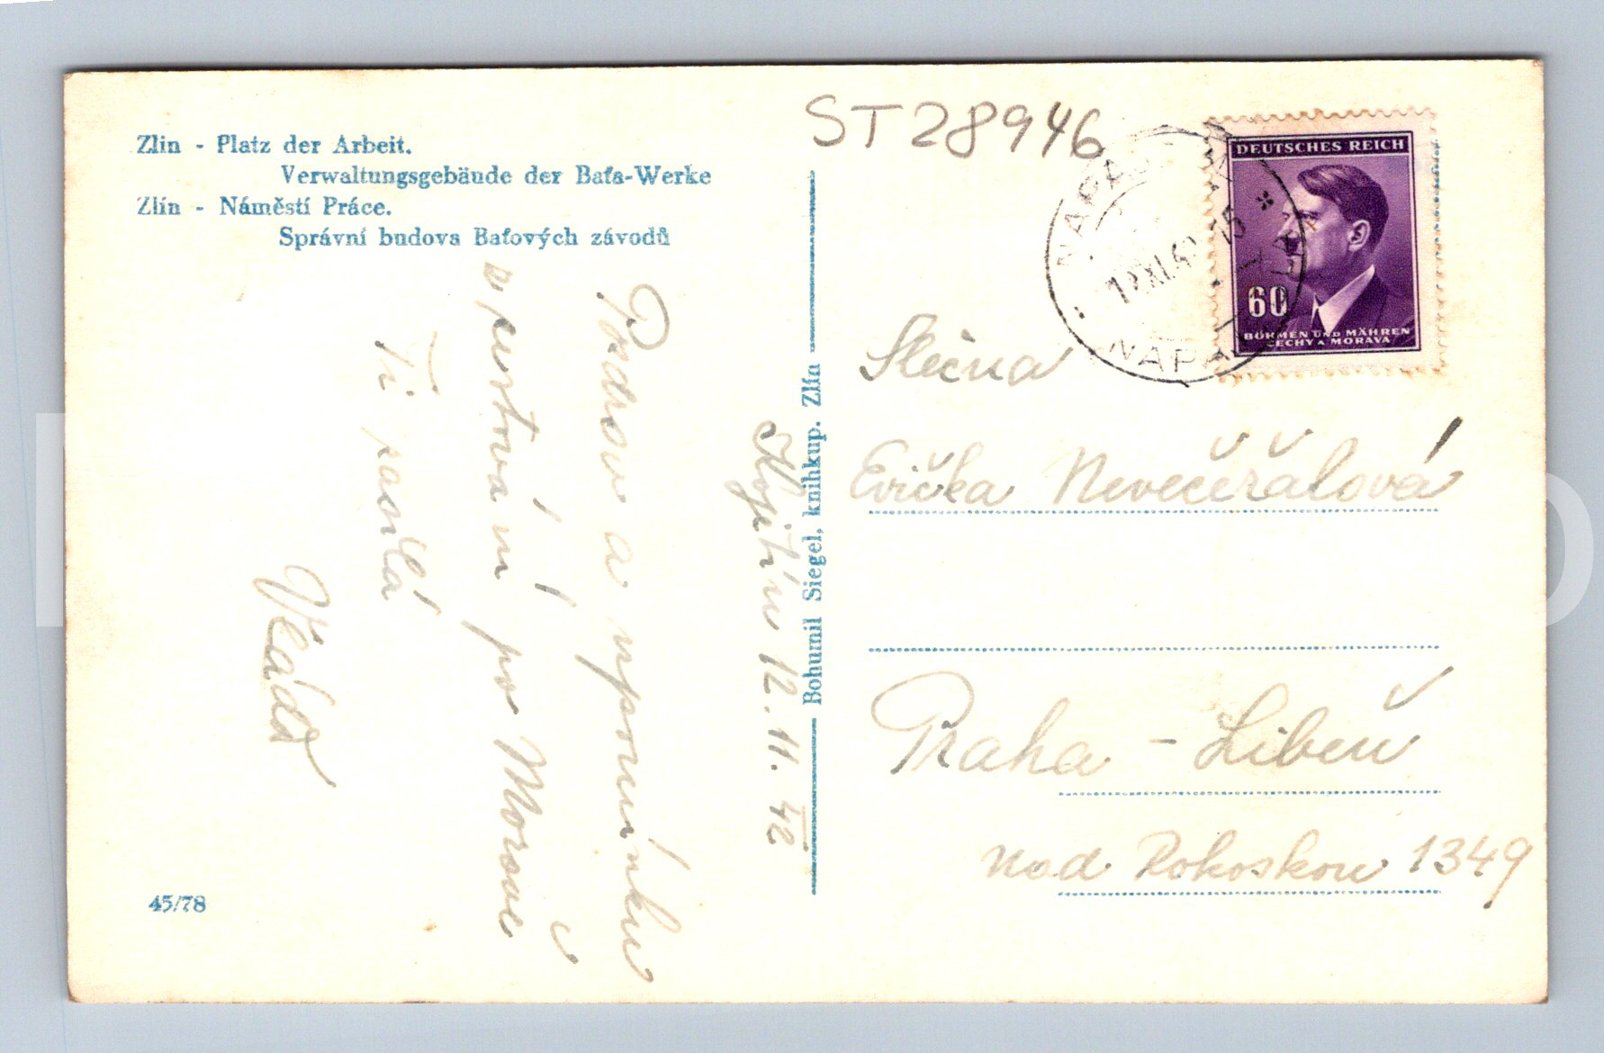 Zlin - Platz der Arbeit.
Verwaltungsgebäude der Baťa-Werke
Zlín - Náměstí Práce.
Správní budova Baťových závodů
ST 28946
DEUTSCHES REICH
60
BÖHMEN UND MÄHREN
ČECHY A MORAVA
NAPA
12.XI.42 15
Slečna
Evička Nevečeřalová
Praha - Libeň
nad Rokoskou 1349
Kojetín 12.11.42
Pozdrav a vzpomínku
z cestování po Moravě
Ti zasílá
Vláďa
Bohumil Siegel, knihkup. Zlín
45/78